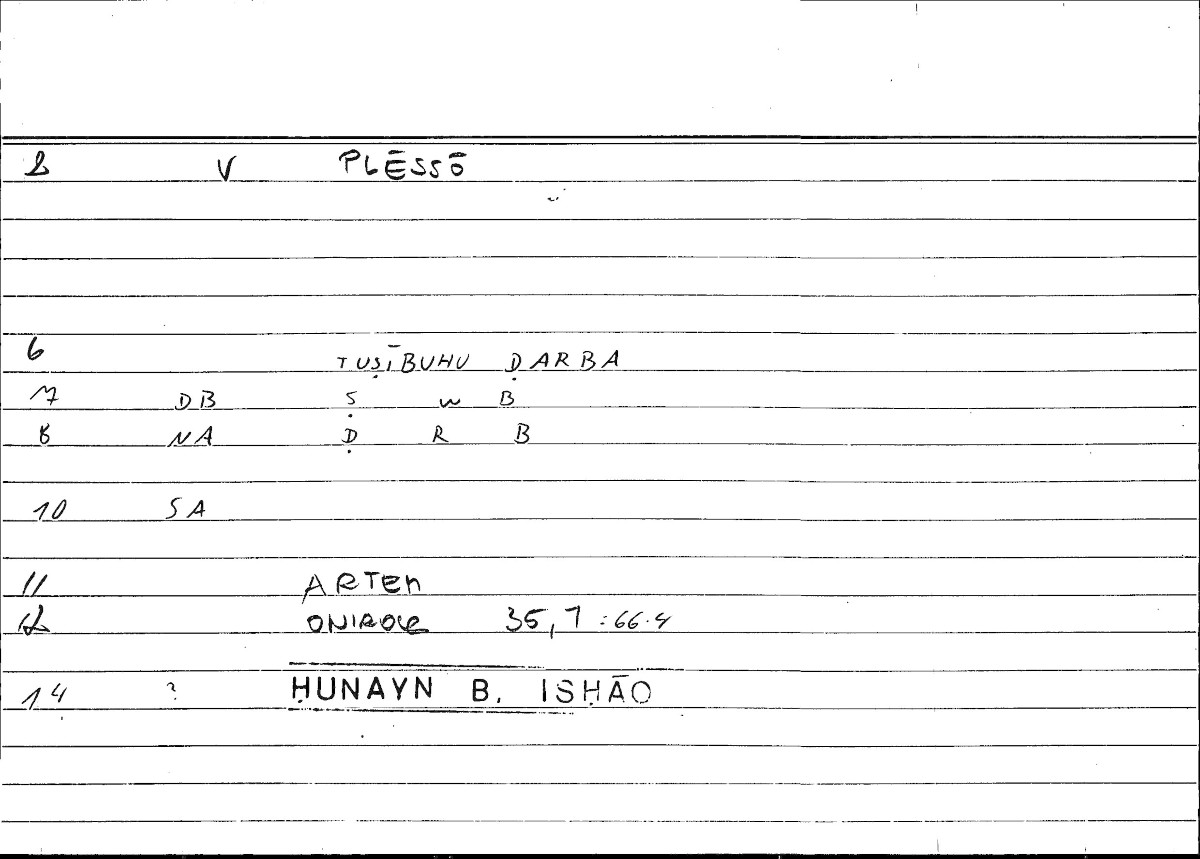 2 V PLĒSSŌ
6 TUṢĪBUHU ḌARBA
7 DB Ṣ W B
8 NA Ḍ R B
10 SA
11 ARTEM
12 ONIROCR 35,7:66.4
14 ? ḤUNAYN B. ISḤĀQ